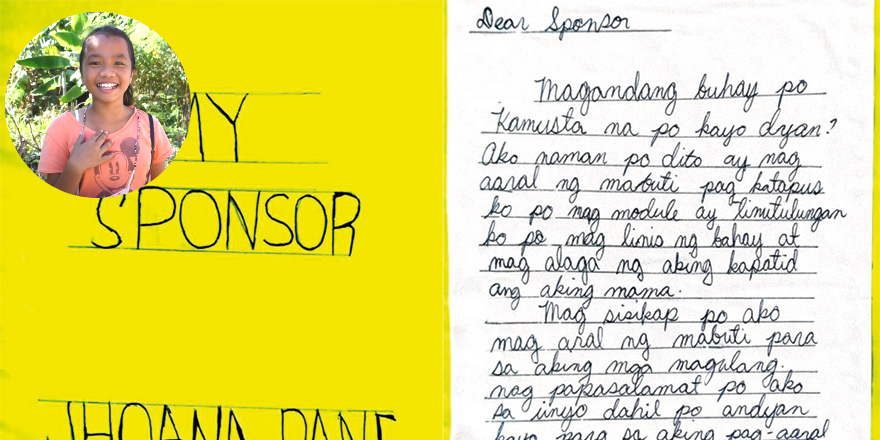 MY
SPONSOR
JHOANA DANE
Dear Sponsor
Magandang buhay po
Kamusta na po kayo dyan?
Ako naman po dito ay nag
aaral ng mabuti pag katapus
ko po nag module ay tinutulungan
ko po mag linis ng bahay at
mag alaga ng aking kapatid
ang aking mama.
Mag sisikap po ako
mag aral ng mabuti para
sa aking mga magulang.
nag papasalamat po ako
sa inyo dahil po andyan
kayo para sa aking pag-aaral